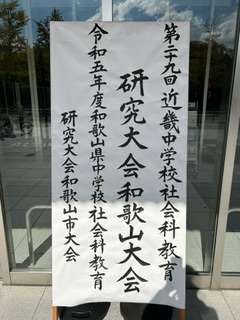 第二十九回近畿中学校社会科教育
研究大会和歌山大会
令和五年度和歌山県中学校社会科教育
研究大会和歌山市大会